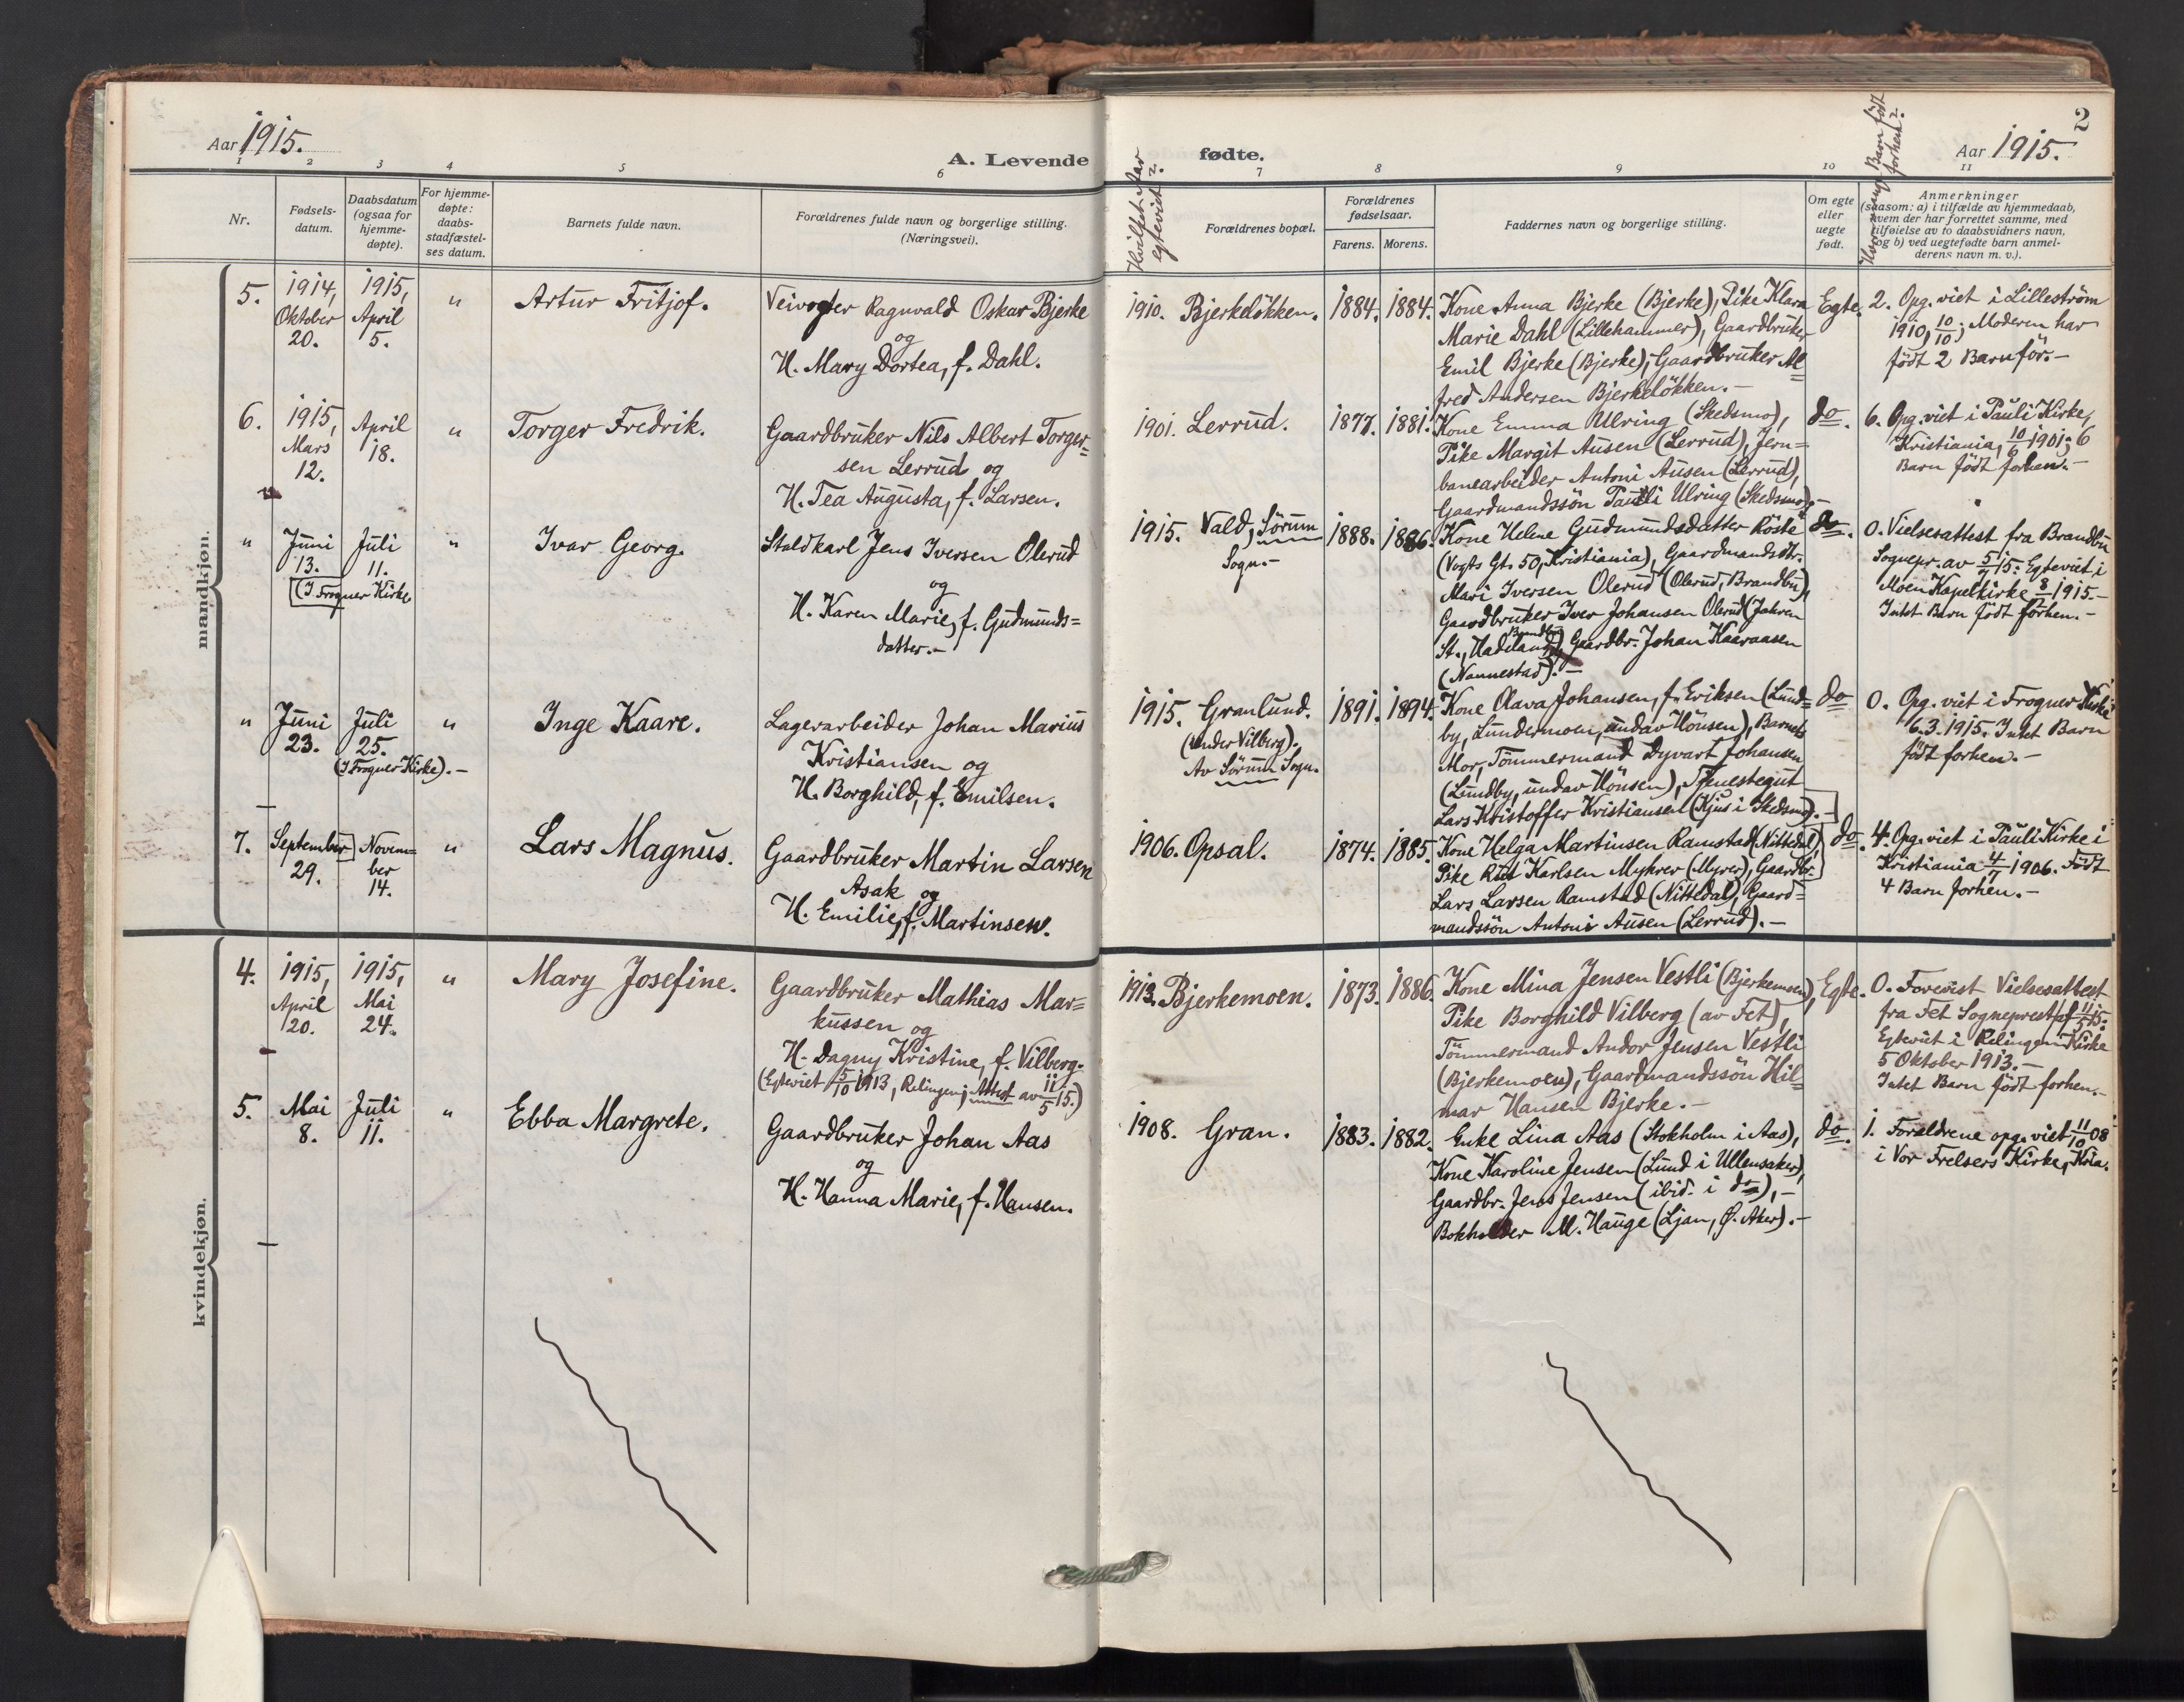 2
Aar 1915.
A. Levende
fødte.
Aar 1915.
1
2
3
4
5
6
7
8
9
10
11
Nr.
Fødsels-
datum.
Daabsdatum
(ogsaa for
hjemme-
døpte).
For hjemme-
døpte:
daabs-
stadfæstel-
ses datum.
Barnets fulde navn.
Forældrenes fulde navn og borgerlige stilling.
(Næringsvei).
Hvilket Aar
egteviet?
Forældrenes bopæl.
Forældrenes
fødselsaar.
Farens.
Morens.
Faddernes navn og borgerlige stilling.
Om egte
eller
uegte
født.
Hvormange Barn født
forhen?
Anmerkninger
(saasom: a) i tilfælde av hjemmedaab,
hvem der har forrettet samme, med
tilføielse av to daabsvidners navn,
og b) ved uegtefødte barn anmel-
derens navn m. v.).
mandkjøn.
5.
1914,
Oktober
20.
1915,
April
5.
"
Artur Fritjof.
Veivogter Ragnvald Oskar Bjerke
og
H. Mary Dortea, f. Dahl.
1910.
Bjerkeløkken.
1884.
1884.
Kone Anna Bjerke (Bjerke), Pike Klara
Marie Dahl (Lillehammer), Gaardbruker
Emil Bjerke (Bjerke), Gaardbruker Al=
fred Andersen Bjerkeløkken.-
Egte.
2. Opg. viet i Lillestrøm
1910, 10/10; Moderen har
født 2 Barn før.-
6.
1915,
Mars
12.
April
18.
"
Torger Fredrik.
Gaardbruker Nils Albert Torger=
sen Lerrud og
H. Tea Augusta, f. Larsen.
1901.
Lerrud.
1877.
1881.
Kone Emma Ulring (Skedsmo),
Pike Margit Ausen (Lerrud), Jern=
banearbeider Antoni Ausen (Lerrud),
Gaardmandssøn Pauli Ulring (Skedsmo).-
do.
6. Opg. viet i Pauli Kirke,
Kristiania, 10/6 1901; 6
Barn født forhen.-
"
Juni
13.
Juli
11.
(I Frogner Kirke
"
Ivar Georg.
Staldkarl Jens Iversen Olerud
og
H. Karen Marie, f. Gudmunds=
datter.-
1915.
Vald, Sørum
Sogn.-
1888.
1886.
Kone Helene Gudmundsdatter Røste
(Vogts Gt. 50, Kristiania), Gaardmandsdtr.
Mari Iversen Olerud (Olerud, Brandbu),
Gaardbruker Iver Johansen Olerud (Jahren
St., Hadeland), Gaardbr. Johan Kaaraasen
Brandbu
(Nannestad).-
do.
0. Vielsesattest fra Brandbu
Sognepr. av 5/7 15: Egteviet i
Moen Kapelkirke 8/1 1915.-
Intet Barn født forhen.-
"
Juni
23.
Juli
25.
(I Frogner Kirke).-
"
Inge Kaare.
Lagerarbeider Johan Marius
Kristiansen og
H. Borghild, f. Emilsen.
1915.
Granlund.
(under Vilberg).
Av Sørum Sogn.
1891.
1894.
Kone Olava Johansen, f. Eriksen (Lund=
by, Lundermoen, undav Hønsen), Barnets
Mor, Tømmermand Dyvart Johansen
(Lundby, undav Hønsen), Tjenestegut
Lars Kristoffer Kristiansen (Kjus i Skedsmo).-
do
0. Opg. viet i Frogner Kirke
6.3.1915. Intet Barn
født forhen.-
7.
September
29.
Novem=
ber
14.
"
Lars Magnus.
Gaardbruker Martin Larsen
Asak og
H. Emilie, f. Martinsen.
1906.
Opsal.
1874.
1885.
Kone Helga Martinsen Ramstad (Nittedal),
Pike Rut Karlsen Myhrer (Myrer), Gaardbr.
Lars Larsen Ramstad (Nittedal), Gaard=
mandssøn Antoni Ausen (Lerrud).-
do.
4. Opg. viet i Pauli Kirke i
Kristiania 4/7 1906. Født
4 Barn forhen.-
kvindekjøn.
4.
1915,
April
20.
1915,
Mai
24.
"
Mary Josefine.
Gaardbruker Mathias Mar=
kussen og
H. Dagny Kristine, f. Vilberg.
(Egteviet 5/10 1913, Relingen; Attest av 11/5 15.)
1913.
Bjerkemoen.
1873.
1886.
Kone Mina Jensen Vestli (Bjerkemoen),
Pike Borghild Vilberg (av Fet),
Tømmermand Andor Jensen Vestli
(Bjerkemoen), Gaardmandssøn Hil=
mar Hansen Bjerke.-
Egte.
0. Forevist Vielsesattest
fra Fet Sogneprest af 11/5 15:
Egteviet i Relingen Kirke
5 Oktober 1913.-
Intet Barn født forhen.-
5.
Mai
8.
Juli
11.
"
Ebba Margrete.
Gaardbruker Johan Aas
og
H. Hanna Marie, f. Hansen.
1908.
Gran.
1883.
1882.
Enke Lina Aas (Stokholm i Aas),
Kone Karoline Jensen (Lund i Ullensaker),
Gaardbr. Jens Jensen (ibid. i do),-
Bokholder M. Hauge (Ljan, Ø. Aker).-
do.
1. Forældrene opg. viet 11/10 08
i Vor Frelsers Kirke, Kria.